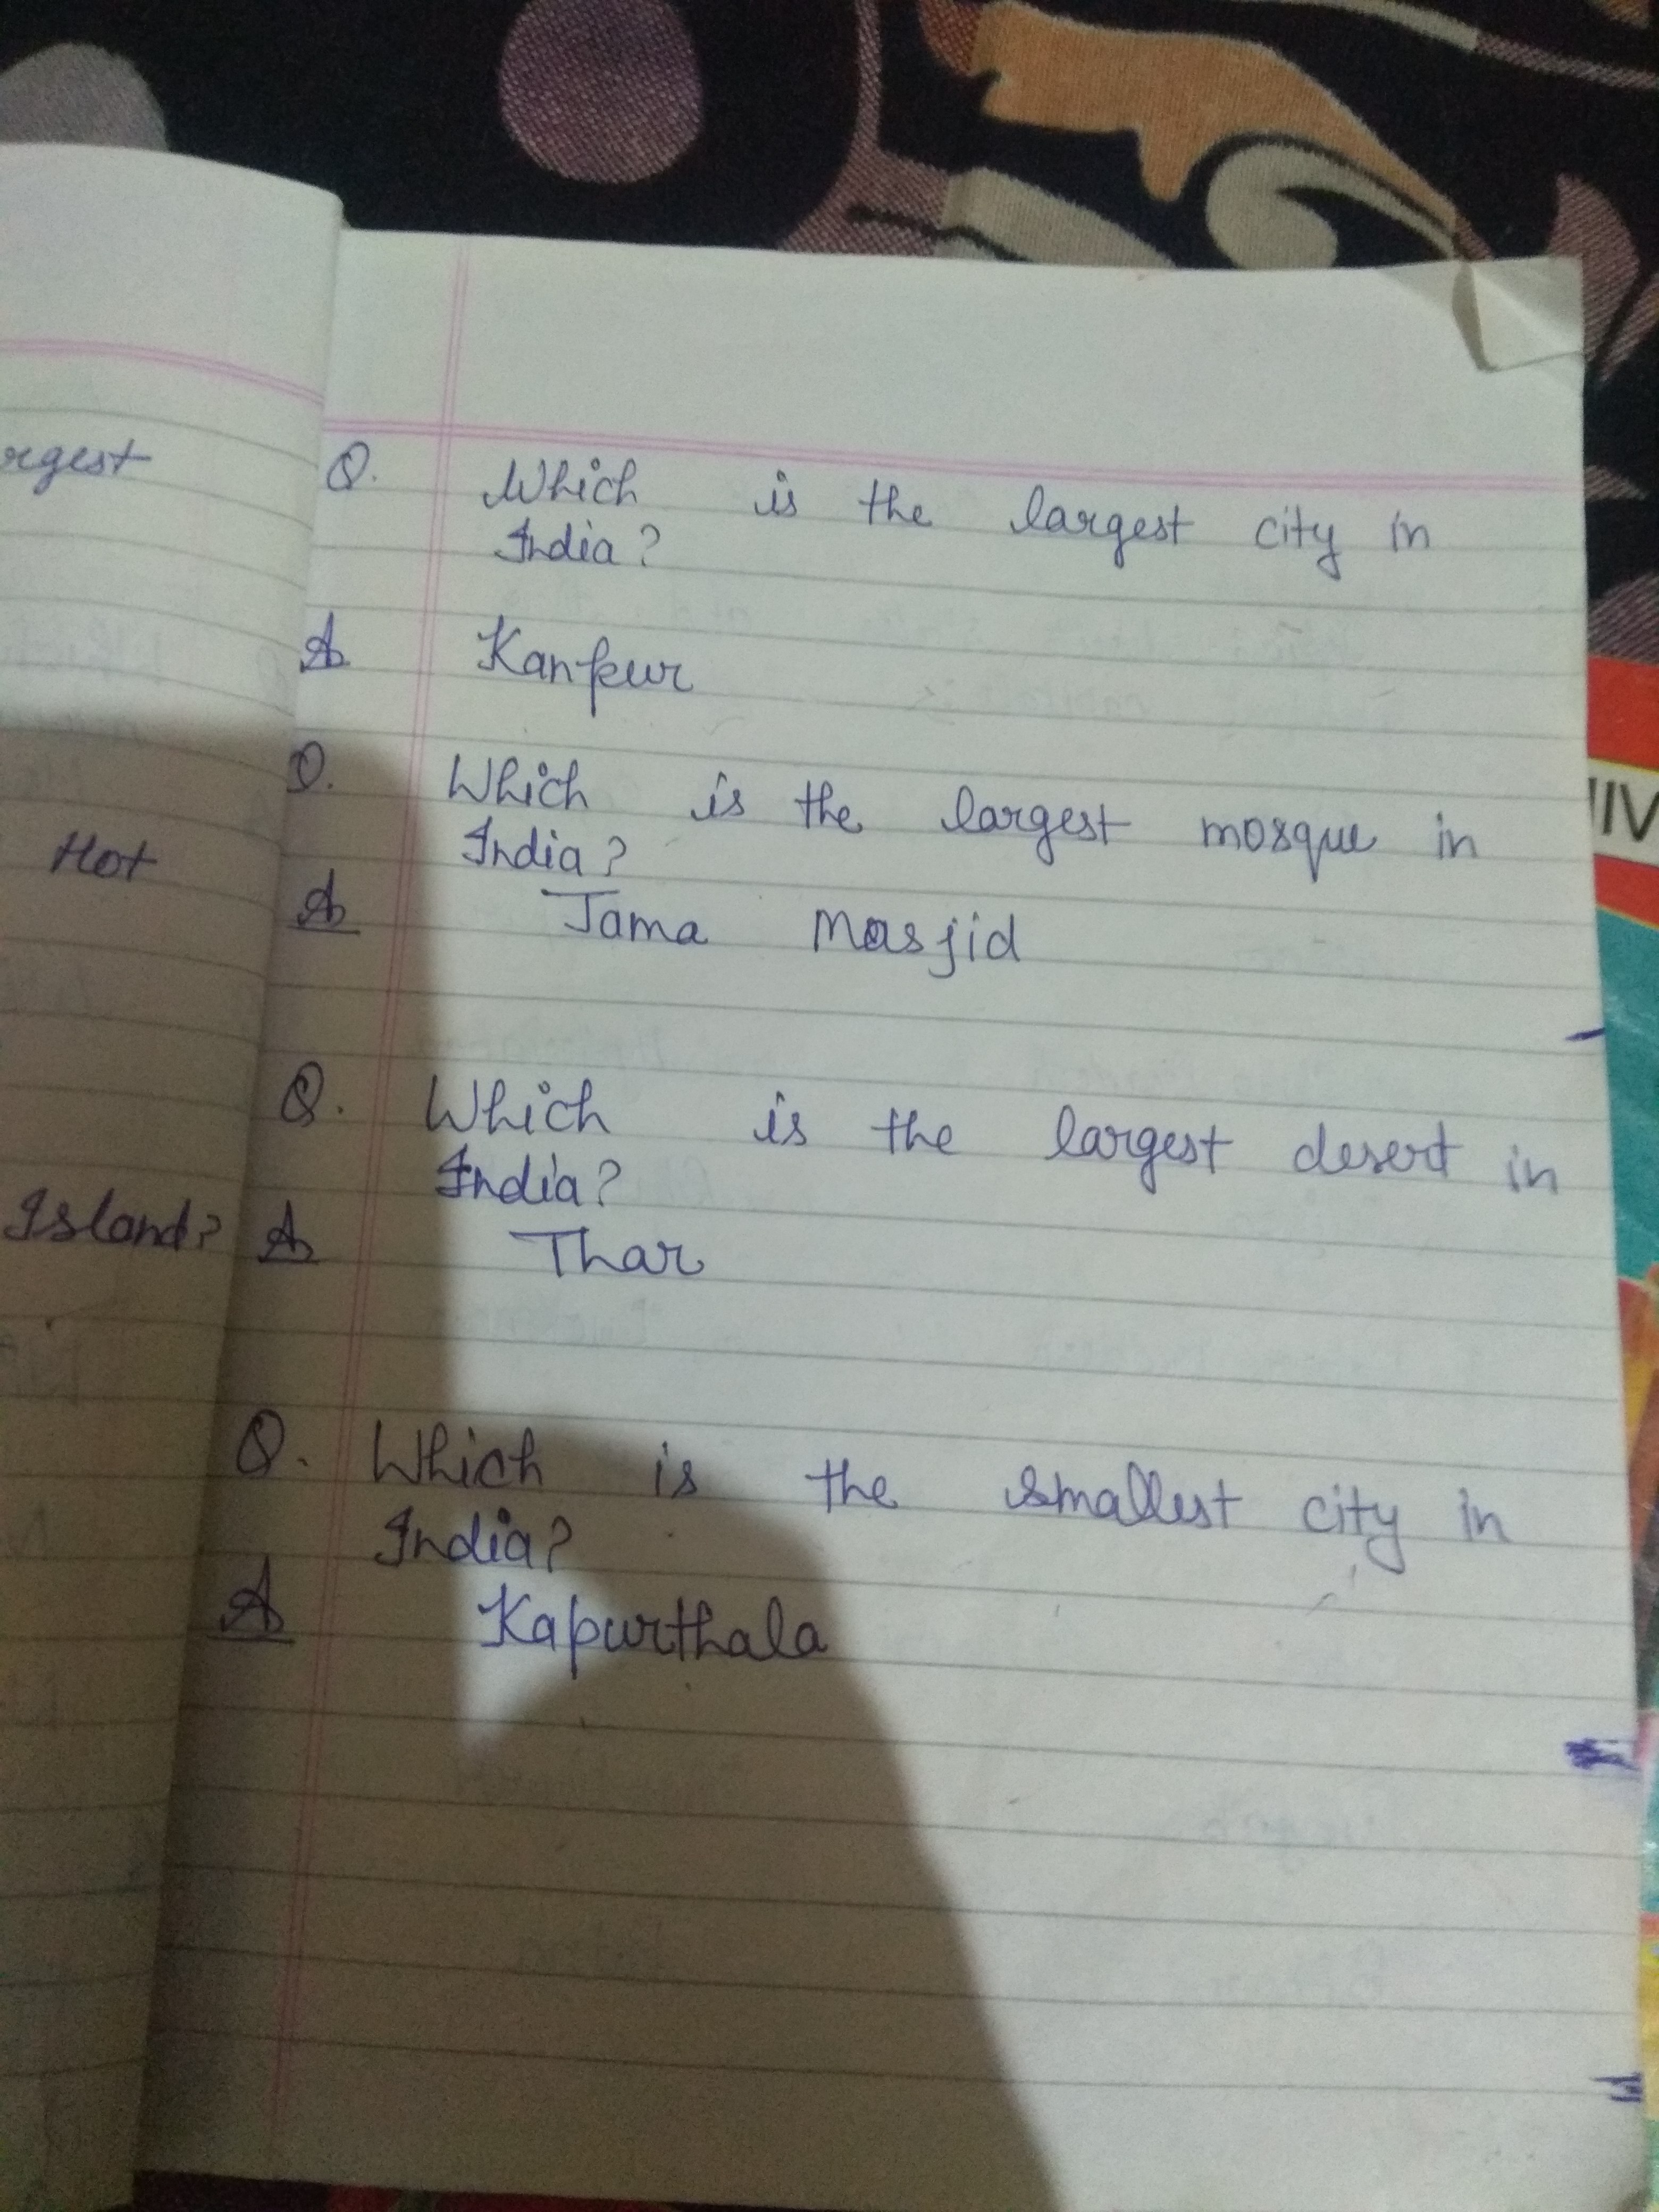 rgest
Hot
Island?
Q. Which is the largest city in
India?
A Kanpur
Q. Which is the largest mosque in
India?
A Jama Masjid
Q. Which is the largest desert in
India?
A Thar
Q. Which is the smallest city in
India?
A Kapurthala
IIV